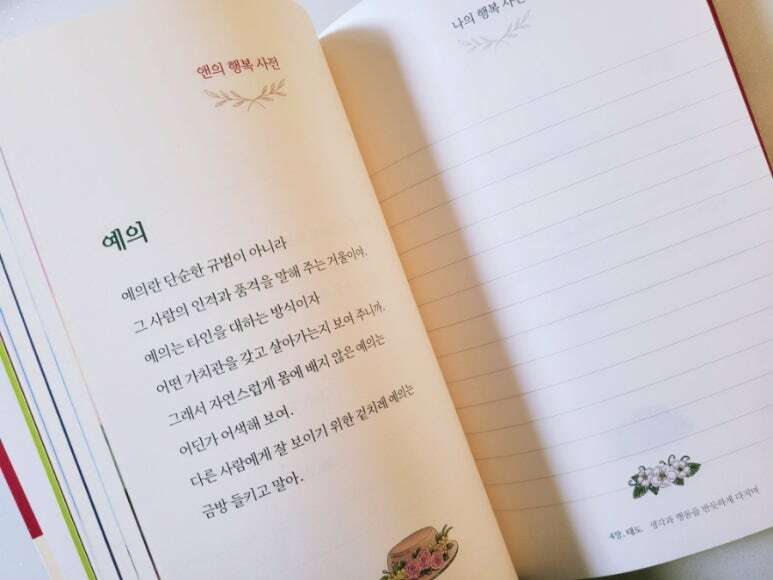 앤의 행복 사전
예의
예의란 단순한 규범이 아니라
그 사람의 인격과 품격을 말해 주는 거울이야.
예의는 타인을 대하는 방식이자
어떤 가치관을 갖고 살아가는지 보여 주니까.
그래서 자연스럽게 몸에 배지 않은 예의는
어딘가 어색해 보여.
다른 사람에게 잘 보이기 위한 겉치레 예의는
금방 들키고 말아.
나의 행복 사전
4장. 태도 생각과 행동을 반듯하게 다지며